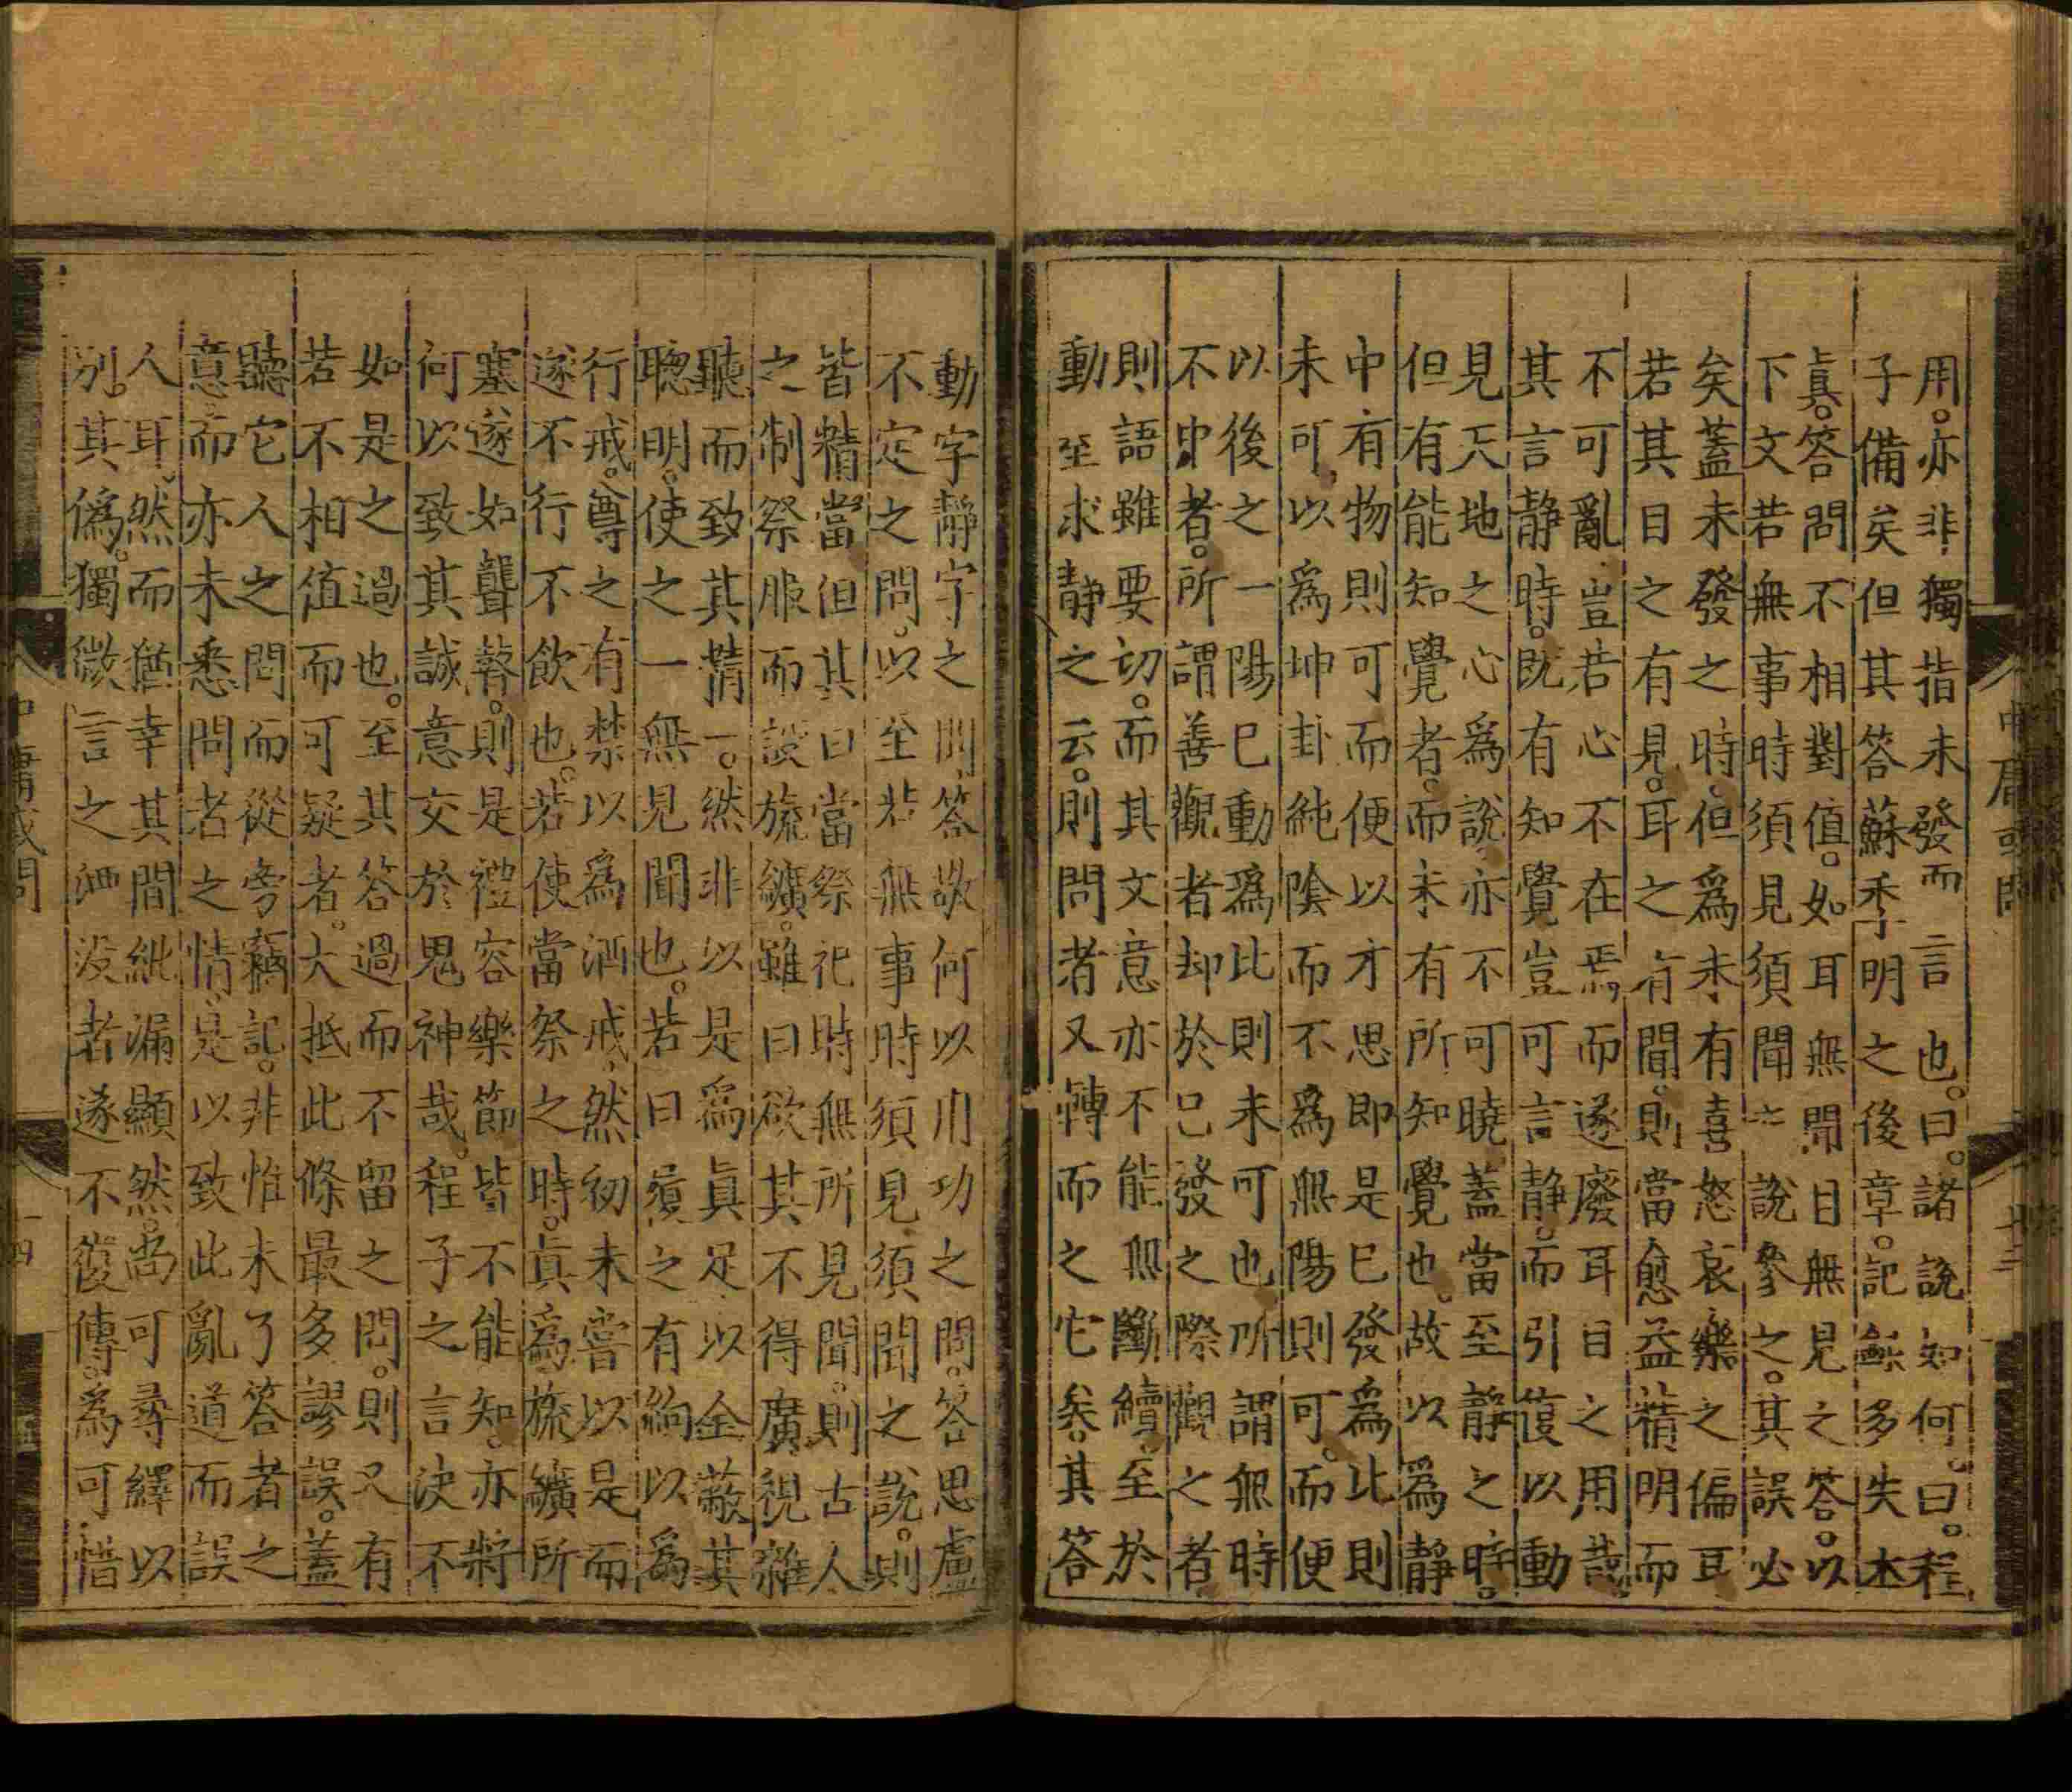 用。亦非獨指未發而言也。曰。諸說如何。曰。程
子備矣但其答蘇季明之後章。記錄多失本
真。答問不相對值。如耳無聞目無見之答。以
下文若無事時須見須聞之說參之。其誤必
矣蓋未發之時。但爲未有喜怒哀樂之偏耳
若其目之有見。耳之有聞。則當愈益精明而
不可亂豈若心不在焉而遂廢耳目之用哉。
其言静時。既有知覺豈可言静。而引復以動
見天地之心爲說亦不可曉蓋當至静之時。
但有能知覺者。而未有所知覺也。故以爲静
中有物則可而便以才思即是已發爲比則
未可。以爲坤卦純陰而不爲無陽則可。而便
以後之一陽已動爲比則未可也所謂無時
不中者。所謂善觀者却於已發之際觀之者
則語雖要切。而其文意亦不能無斷續。至於
動至求静之云。則問者又轉而之它矣。其答
動字静字之問。答敬何以用功之問。答思慮
不定之問。以至若無事時須見須聞之說。則
皆精當但其曰當祭祀時無所見聞。則古人
之制祭服而設旒纊。雖曰欲其不得廣視雜
聽而致其精一。然非以是爲眞足以全蔽其
聰明。使之一無見聞也。若曰履之有絇以爲
行戒。尊之有禁以爲酒戒。然初未嘗以是而
遂不行不飲也。若使當祭之時。眞爲旒纊所
塞遂如聾瞽。則是禮容樂節皆不能知。亦將
何以致其誠意交於鬼神哉。程子之言決不
如是之過也。至其答過而不留之問。則又有
若不相值而可疑者。大抵此條最多謬誤。蓋
聽它人之問而從旁竊記。非惟未了答者之
意而亦未悉問者之情。是以致此亂道而誤
人耳。然而猶幸其間紕漏顯然。尚可尋繹以
別。其僞。獨微言之湮没者遂不復傳。爲可惜
中庸或問
十三
中庸或問
十四